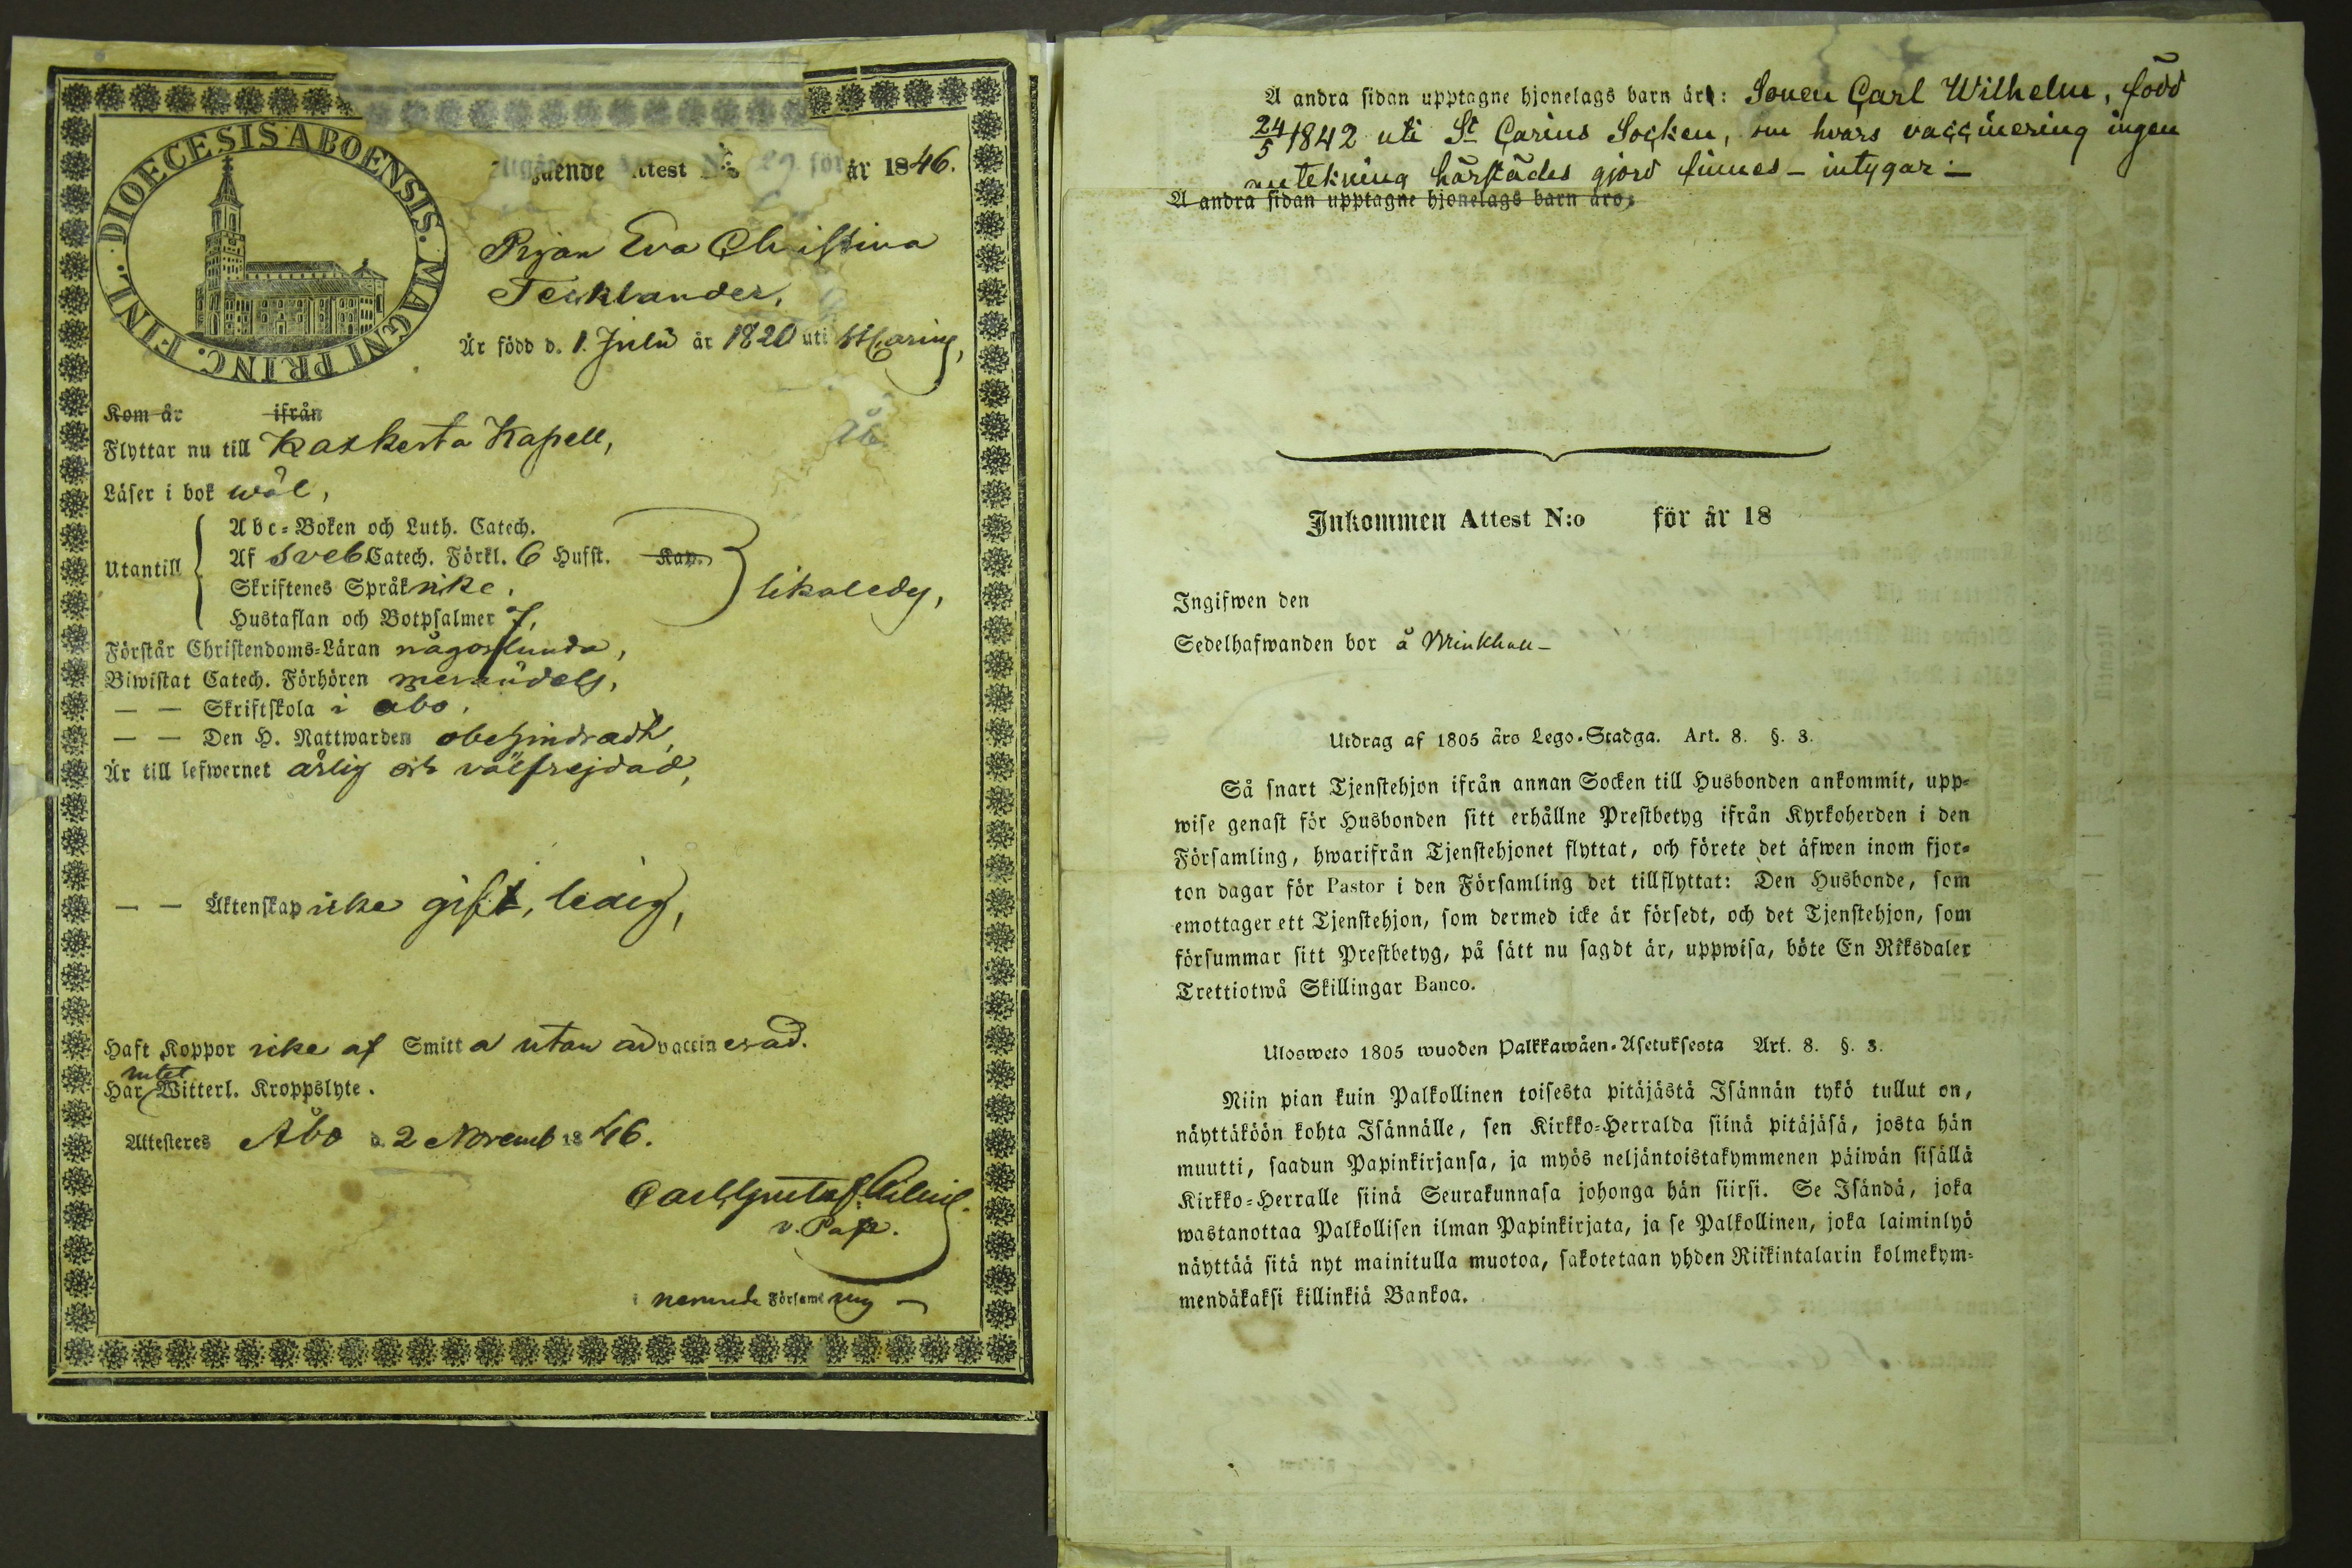 DIOECESIS ABOENSIS. MAGNI PRINC. FINL.
Utgående Attest N:o 29 för år 1846.
Pigan Eva Christina
Tecklander,
Är född d. 1. Julii år 1820 uti St Carins,
Kom år ifrån
Flyttar nu till Kaskerta Kapell,
Läser i bok wäl,
Utantill
Abc-Boken och Luth. Catech.
Af Sveb. Catech. Förkl. 6 Hufst. Kap.
Skriftenes Språk icke,
Hustaflan och Botpsalmer 7,
likaledes,
Förstår Christendoms-Läran någorlunda,
Biwistat Catech. Förhören merändels,
— — Skriftskola i Åbo,
— — Den H. Nattwarden obehindradt,
Är till lefwernet ärlig och välfrejdad,
— — Äktenskap icke gift, ledig,
Haft Koppor icke af Smitta utan är vaccinerad.
intet
Har Witterl. Kroppslyte.
Attesteres Åbo d. 2 Novemb 1846.
Carl Gustaf
v. Past.
i nemnde Församling —
Å andra sidan upptagne hjonelags barn är: Sonen Carl Wilhelm, född
24/5 1842 uti St Carins Socken, om hvars vaccinering ingen
antekning härstädes gjord finnes – intygar: —
Å andra sidan upptagne hjonelags barn äro:
Inkommen Attest N:o för år 18
Ingifwen den
Sedelhafwanden bor å
Utdrag af 1805 års Lego-Stadga. Art. 8. §. 3.
Så snart Tjenstehjon ifrån annan Socken till Husbonden ankommit, upp-
wise genast för Husbonden sitt erhållne Prestbetyg ifrån Kyrkoherden i den
Församling, hwarifrån Tjenstehjonet flyttat, och förete det äfwen inom fjor-
ton dagar för Pastor i den Församling det tillflyttat: Den Husbonde, som
emottager ett Tjenstehjon, som dermed icke är försedt, och det Tjenstehjon, som
försummar sitt Prestbetyg, på sätt nu sagdt är, uppwisa, böte En Riksdaler
Trettiotwå Skillingar Banco.
Ulosweto 1805 wuoden Palkkawäen-Asetuksesta Art. 8. §. 3.
Niin pian kuin Palkollinen toisesta pitäjästä Isännän tykö tullut on,
näyttäköön kohta Isännälle, sen Kirkko-Herralda siinä pitäjäsä, josta hän
muutti, saadun Papinkirjansa, ja myös neljäntoistakymmenen päiwän sisällä
Kirkko-Herralle siinä Seurakunnasa johonga hän siirsi. Se Isändä, joka
wastanottaa Palkollisen ilman Papinkirjata, ja se Palkollinen, joka laiminlyö
näyttää sitä nyt mainitulla muotoa, sakotetaan yhden Riikintalarin kolmekym-
mendäkaksi killinkiä Bankoa.